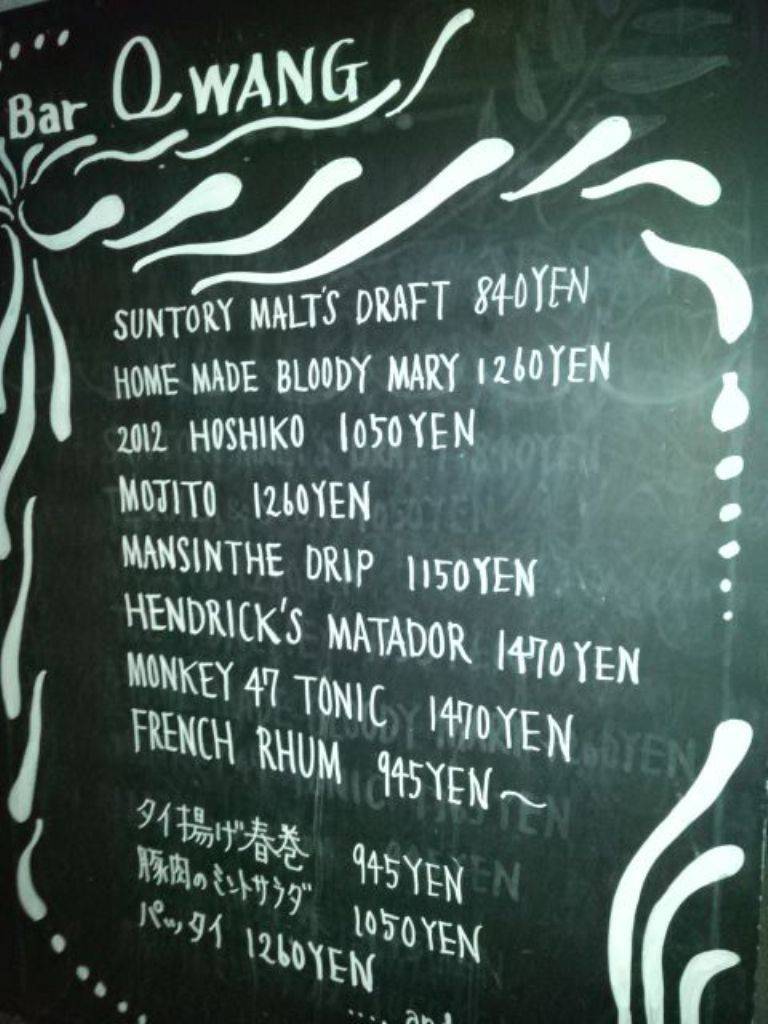 Bar QWANG
SUNTORY MALT'S DRAFT 840YEN
HOME MADE BLOODY MARY 1260YEN
2012 HOSHIKO 1050YEN
MOJITO 1260YEN
MANSINTHE DRIP 1150YEN
HENDRICK'S MATADOR 1470YEN
MONKEY 47 TONIC 1470YEN
FRENCH RHUM 945YEN〜
タイ揚げ春巻 945YEN
豚肉のミントサラダ 1050YEN
パッタイ 1260YEN
..... and